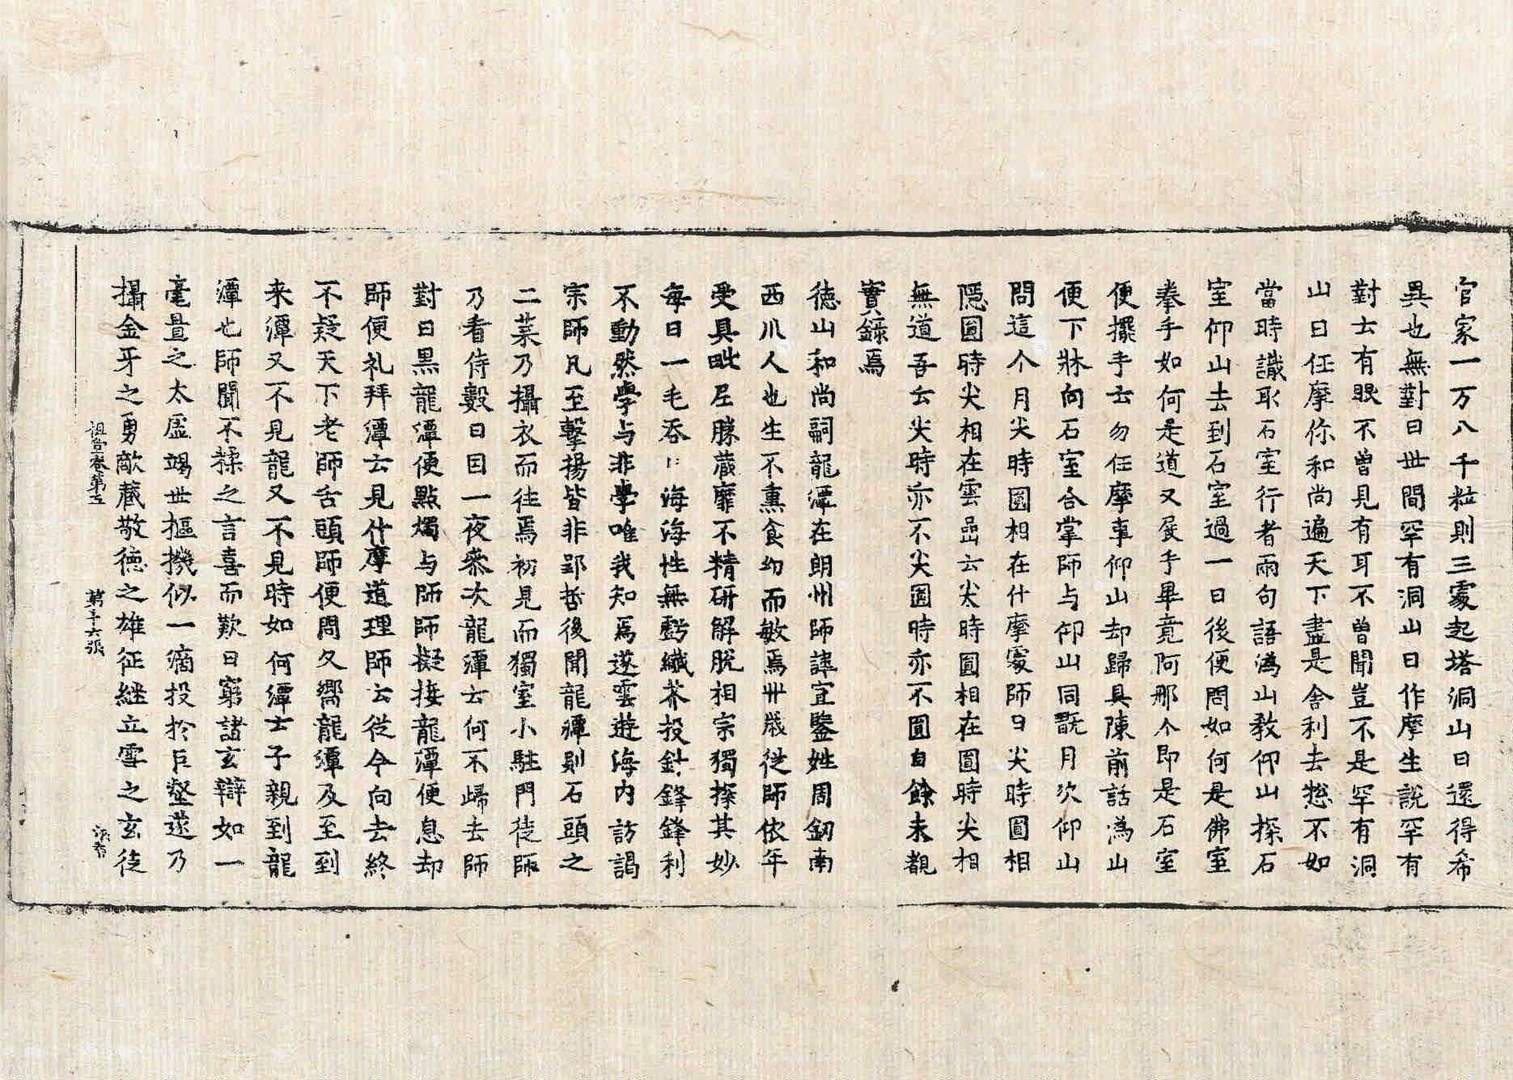 官家一万八千粒則三處起塔洞山曰還得希
異也無對曰世間罕有洞山曰作摩生說罕有
對士有眼不曾見有耳不曾聞豈不是罕有洞
山曰任摩你和尚遍天下盡是舍利去惣不如
當時識取石室行者兩句語溈山教仰山探石
室仰山去到石室過一日後便問如何是佛室
拳手如何是道又展手畢竟阿那个即是石室
便擺手云勿任摩事仰山却歸具陳前話溈山
便下牀向石室合掌師与仰山同翫月次仰山
問這个月尖時圓相在什摩處師曰尖時圓相
隱圓時尖相在雲嵒云尖時圓相在圓時尖相
無道吾云尖時亦不尖圓時亦不圓自餘未覩
實錄焉
德山和尚嗣龍潭在朗州師諱宣鑒姓周劒南
西川人也生不熏食幼而敏焉丱歲從師依年
受具毗尼勝藏靡不精研解脫相宗獨探其妙
每日一毛吞巨海海性無虧纖芥投針鋒鋒利
不動然學与非學唯我知焉遂雲遊海內訪謁
宗師凡至擊揚皆非郢哲後聞龍潭則石頭之
二菜乃攝衣而往焉初見而獨室小駐門徒師
乃看侍數日因一夜叅次龍潭云何不歸去師
對曰黑龍潭便點燭与師師擬接龍潭便息却
師便礼拜潭云見什摩道理師云從今向去終
不疑天下老師舌頭師便問久嚮龍潭及至到
来潭又不見龍又不見時如何潭士子親到龍
潭也師聞不糅之言喜而歎曰窮諸玄辯如一
毫置之太虛竭世樞機似一滴投於巨壑遂乃
攝金牙之勇敵藏敬德之雄征継立雪之玄徒
祖堂卷第五 第十六張